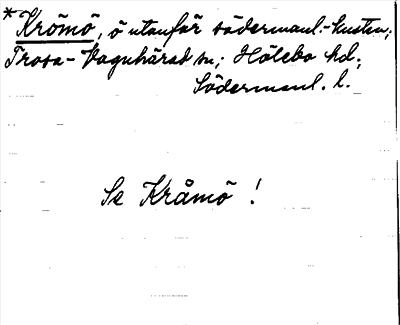 *Krömö, ö utanför södermanl.-kusten;
Trosa-Vagnhärad sn; Hölebo hd;
Södermanl. l.
Se Kråmö!